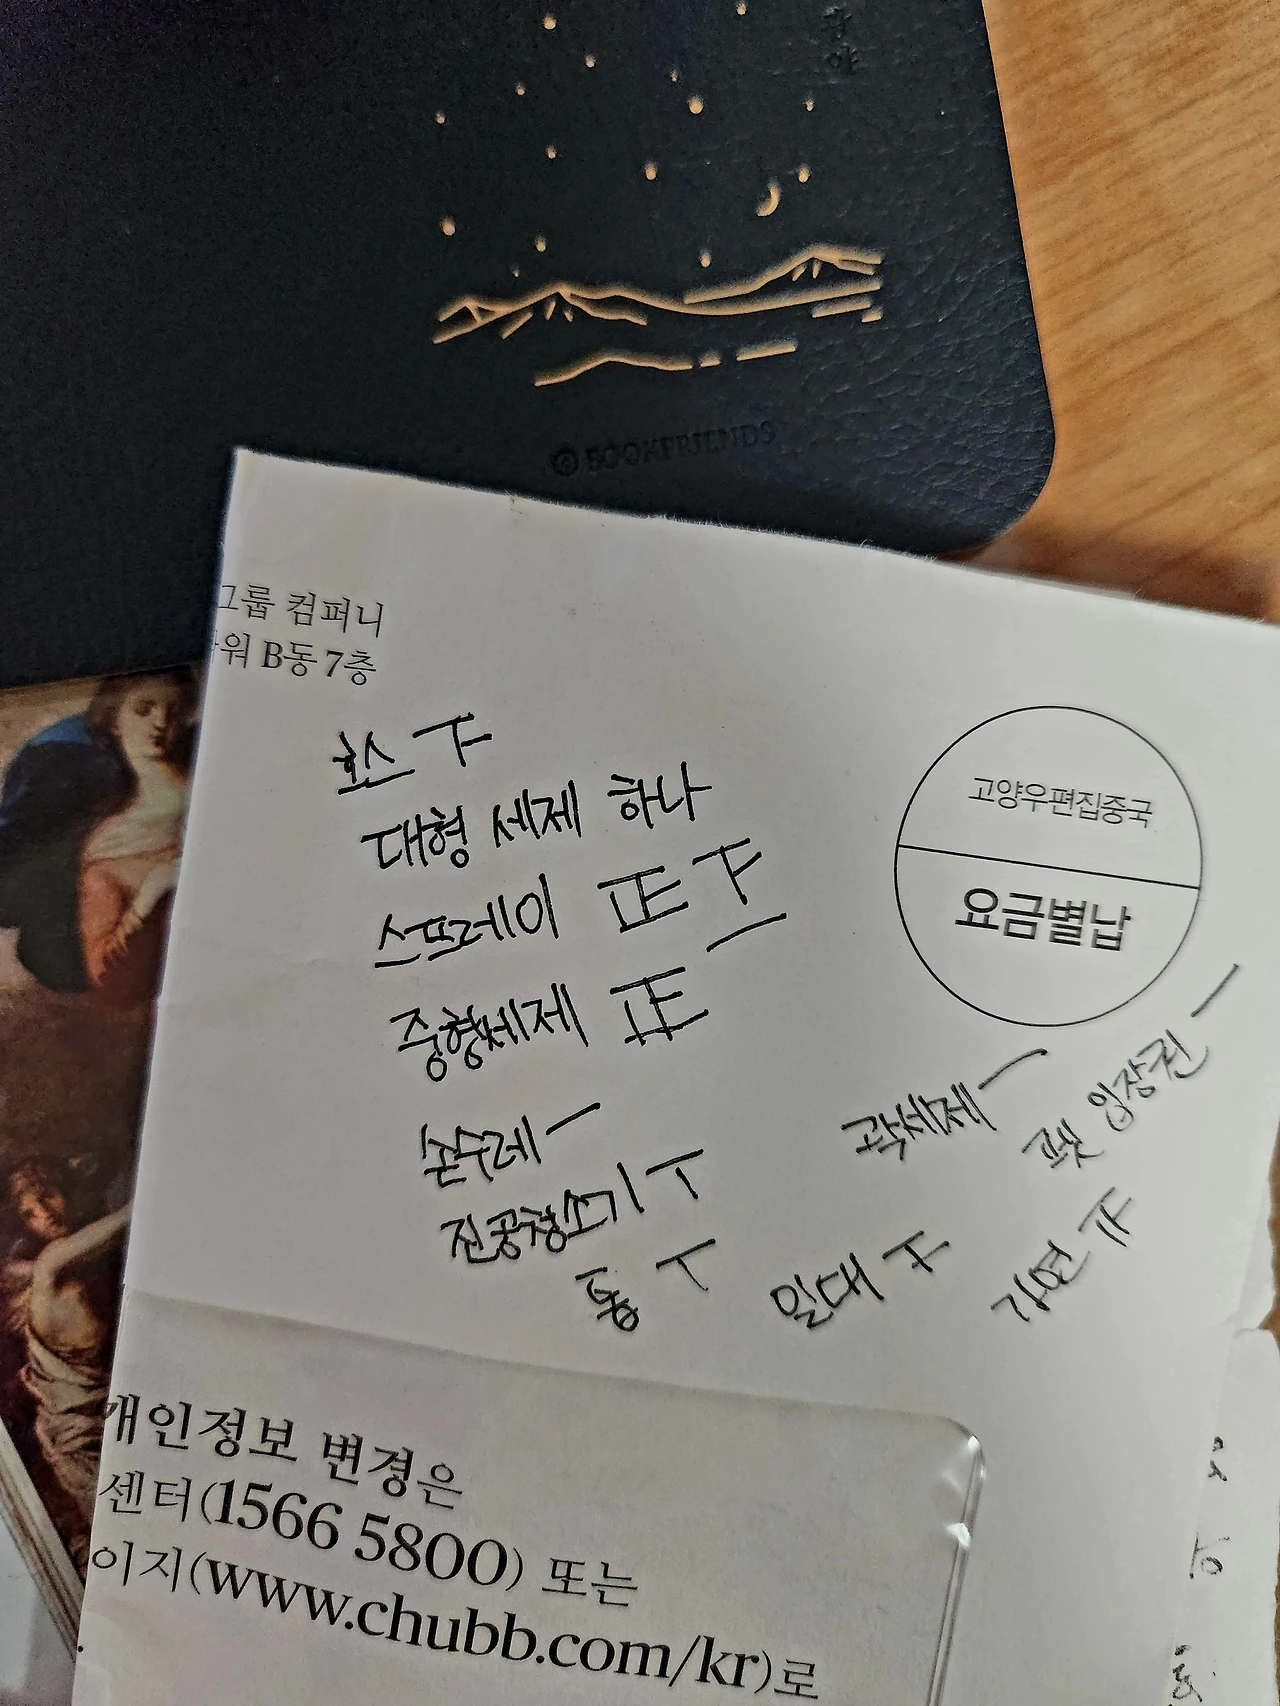 광야
BOOKFRIENDS
그룹 컴퍼니
워 B동 7층
고양우편집중국
요금별납
호스 下
대형 세제 하나
스프레이 正 下
중형세제 正
손수레 一
진공청소기 丅
통 丅
곽세제 一
펫 입장권 一
밀대
개인정보 변경은
센터(1566 5800) 또는
이지(www.chubb.com/kr)로